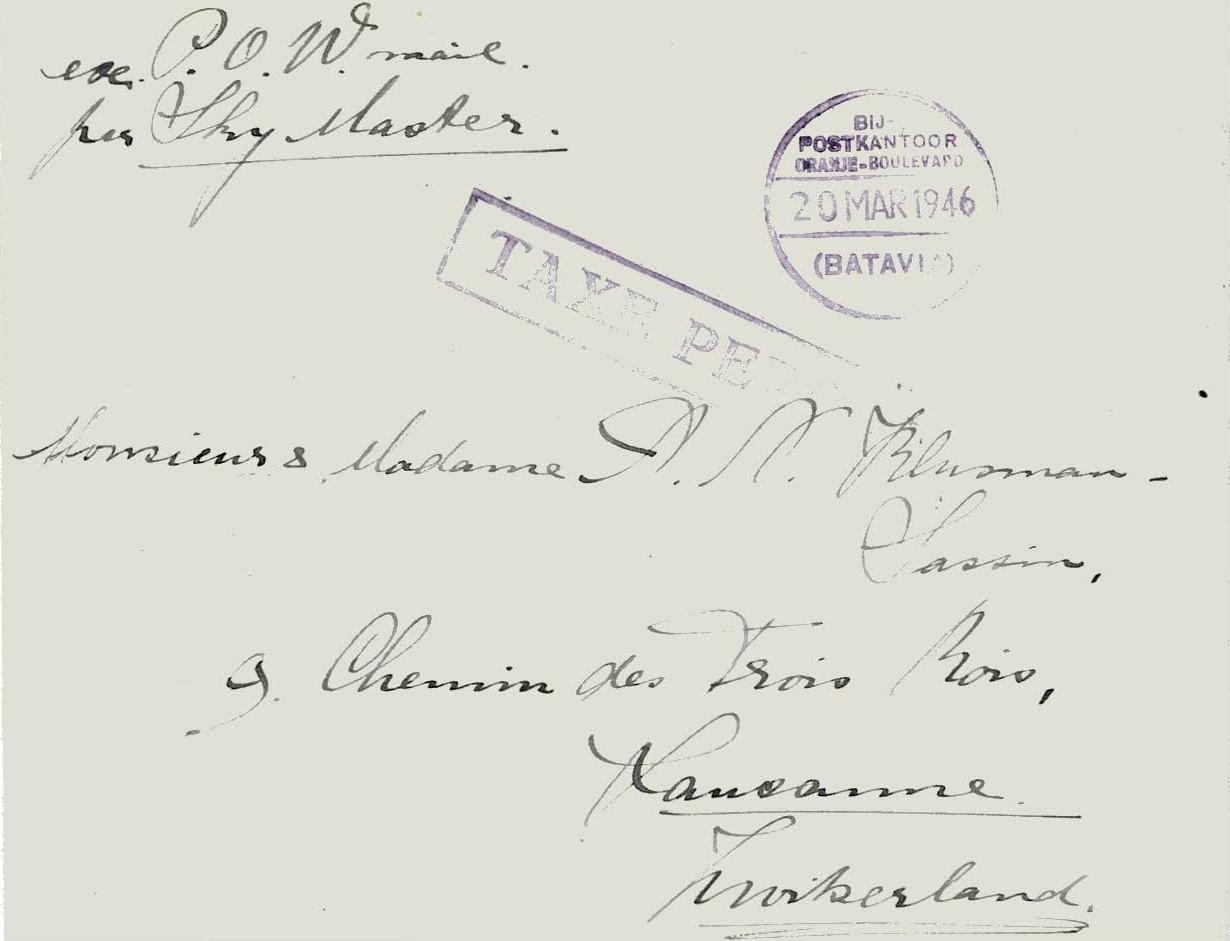 exe. P. O. W. mail.
per Sky Master.
BIJ-
POSTKANTOOR
ORANJE-BOULEVARD
20 MAR 1946
(BATAVIA)
TAXE PE
Monsieur & Madame A. N. Klusman-
Sassin,
9. Chemin des Trois Rois,
Lausanne.
Zwitserland.